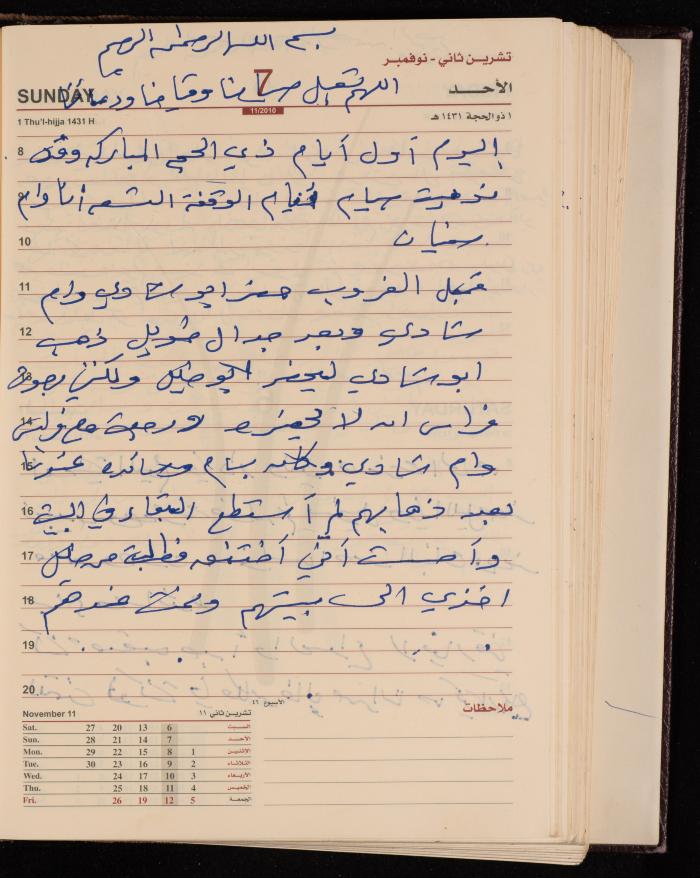 بسم الله الرحمن الرحيم
تشرين ثاني - نوفمبر
SUNDAY 7 الأحد
اللهم تقبل صيامنا وقيامنا ودعائنا
11/2010
1 Thu'l-hijja 1431 H ١ ذو الحجة ١٤٣١ هـ
8 اليوم أول أيام ذي الحجة المباركه وقد
9 نويت صيام أيام الوقفة التسعه أنا وام
10 سفيان
11 قبل الغروب حضر ابو شادي وام
12 شادي وبعد جدال طويل ذهب
13 ابو شادي ليحضر ولكني رجوت
14 فراس انه لا يحضره ورجعت مع فراس
15 وام شادي وكانه بسام وعندنا
16 بعد ذهابهم لم أستطع البقاء في البيت
17 وأحسست أني أختنق فطلبت من
18 اخذي الى بيتهم ونمت عندهم
19
20
الاسبوع ٤٦
ملاحظات
November 11 تشرين ثاني ١١
Sat. 27 20 13 6 السبت
Sun. 28 21 14 7 الأحد
Mon. 29 22 15 8 1 الاثنين
Tue. 30 23 16 9 2 الثلاثاء
Wed. 24 17 10 3 الأربعاء
Thu. 25 18 11 4 الخميس
Fri. 26 19 12 5 الجمعة